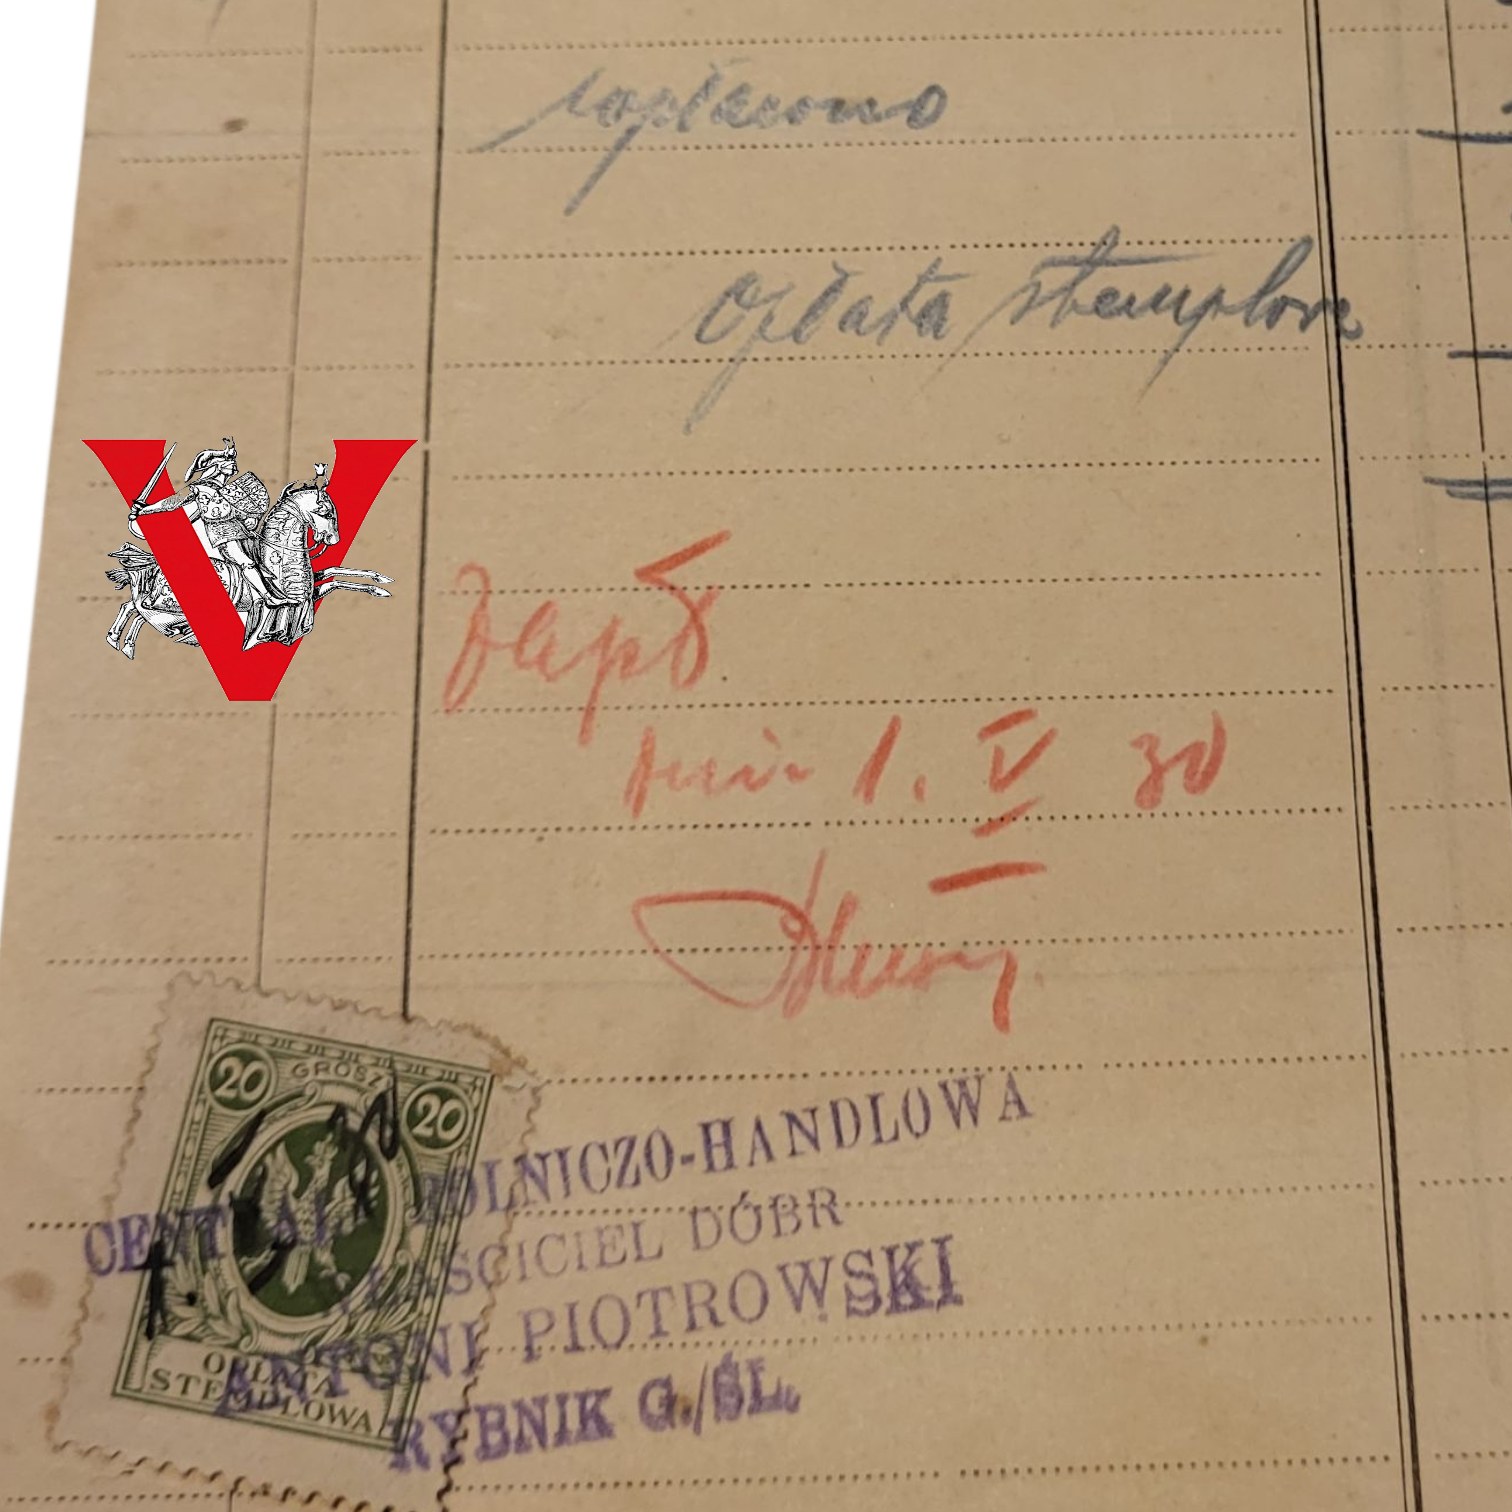 zapłacono
Opłata stemplowa
Zapł.
1. V 30
20 GROSZY 20
1. 5. 30
OPŁATA
STEMPLOWA
CENTRALA ROLNICZO-HANDLOWA
WŁAŚCICIEL DÓBR
ANTONI PIOTROWSKI
RYBNIK G./ŚL.
V